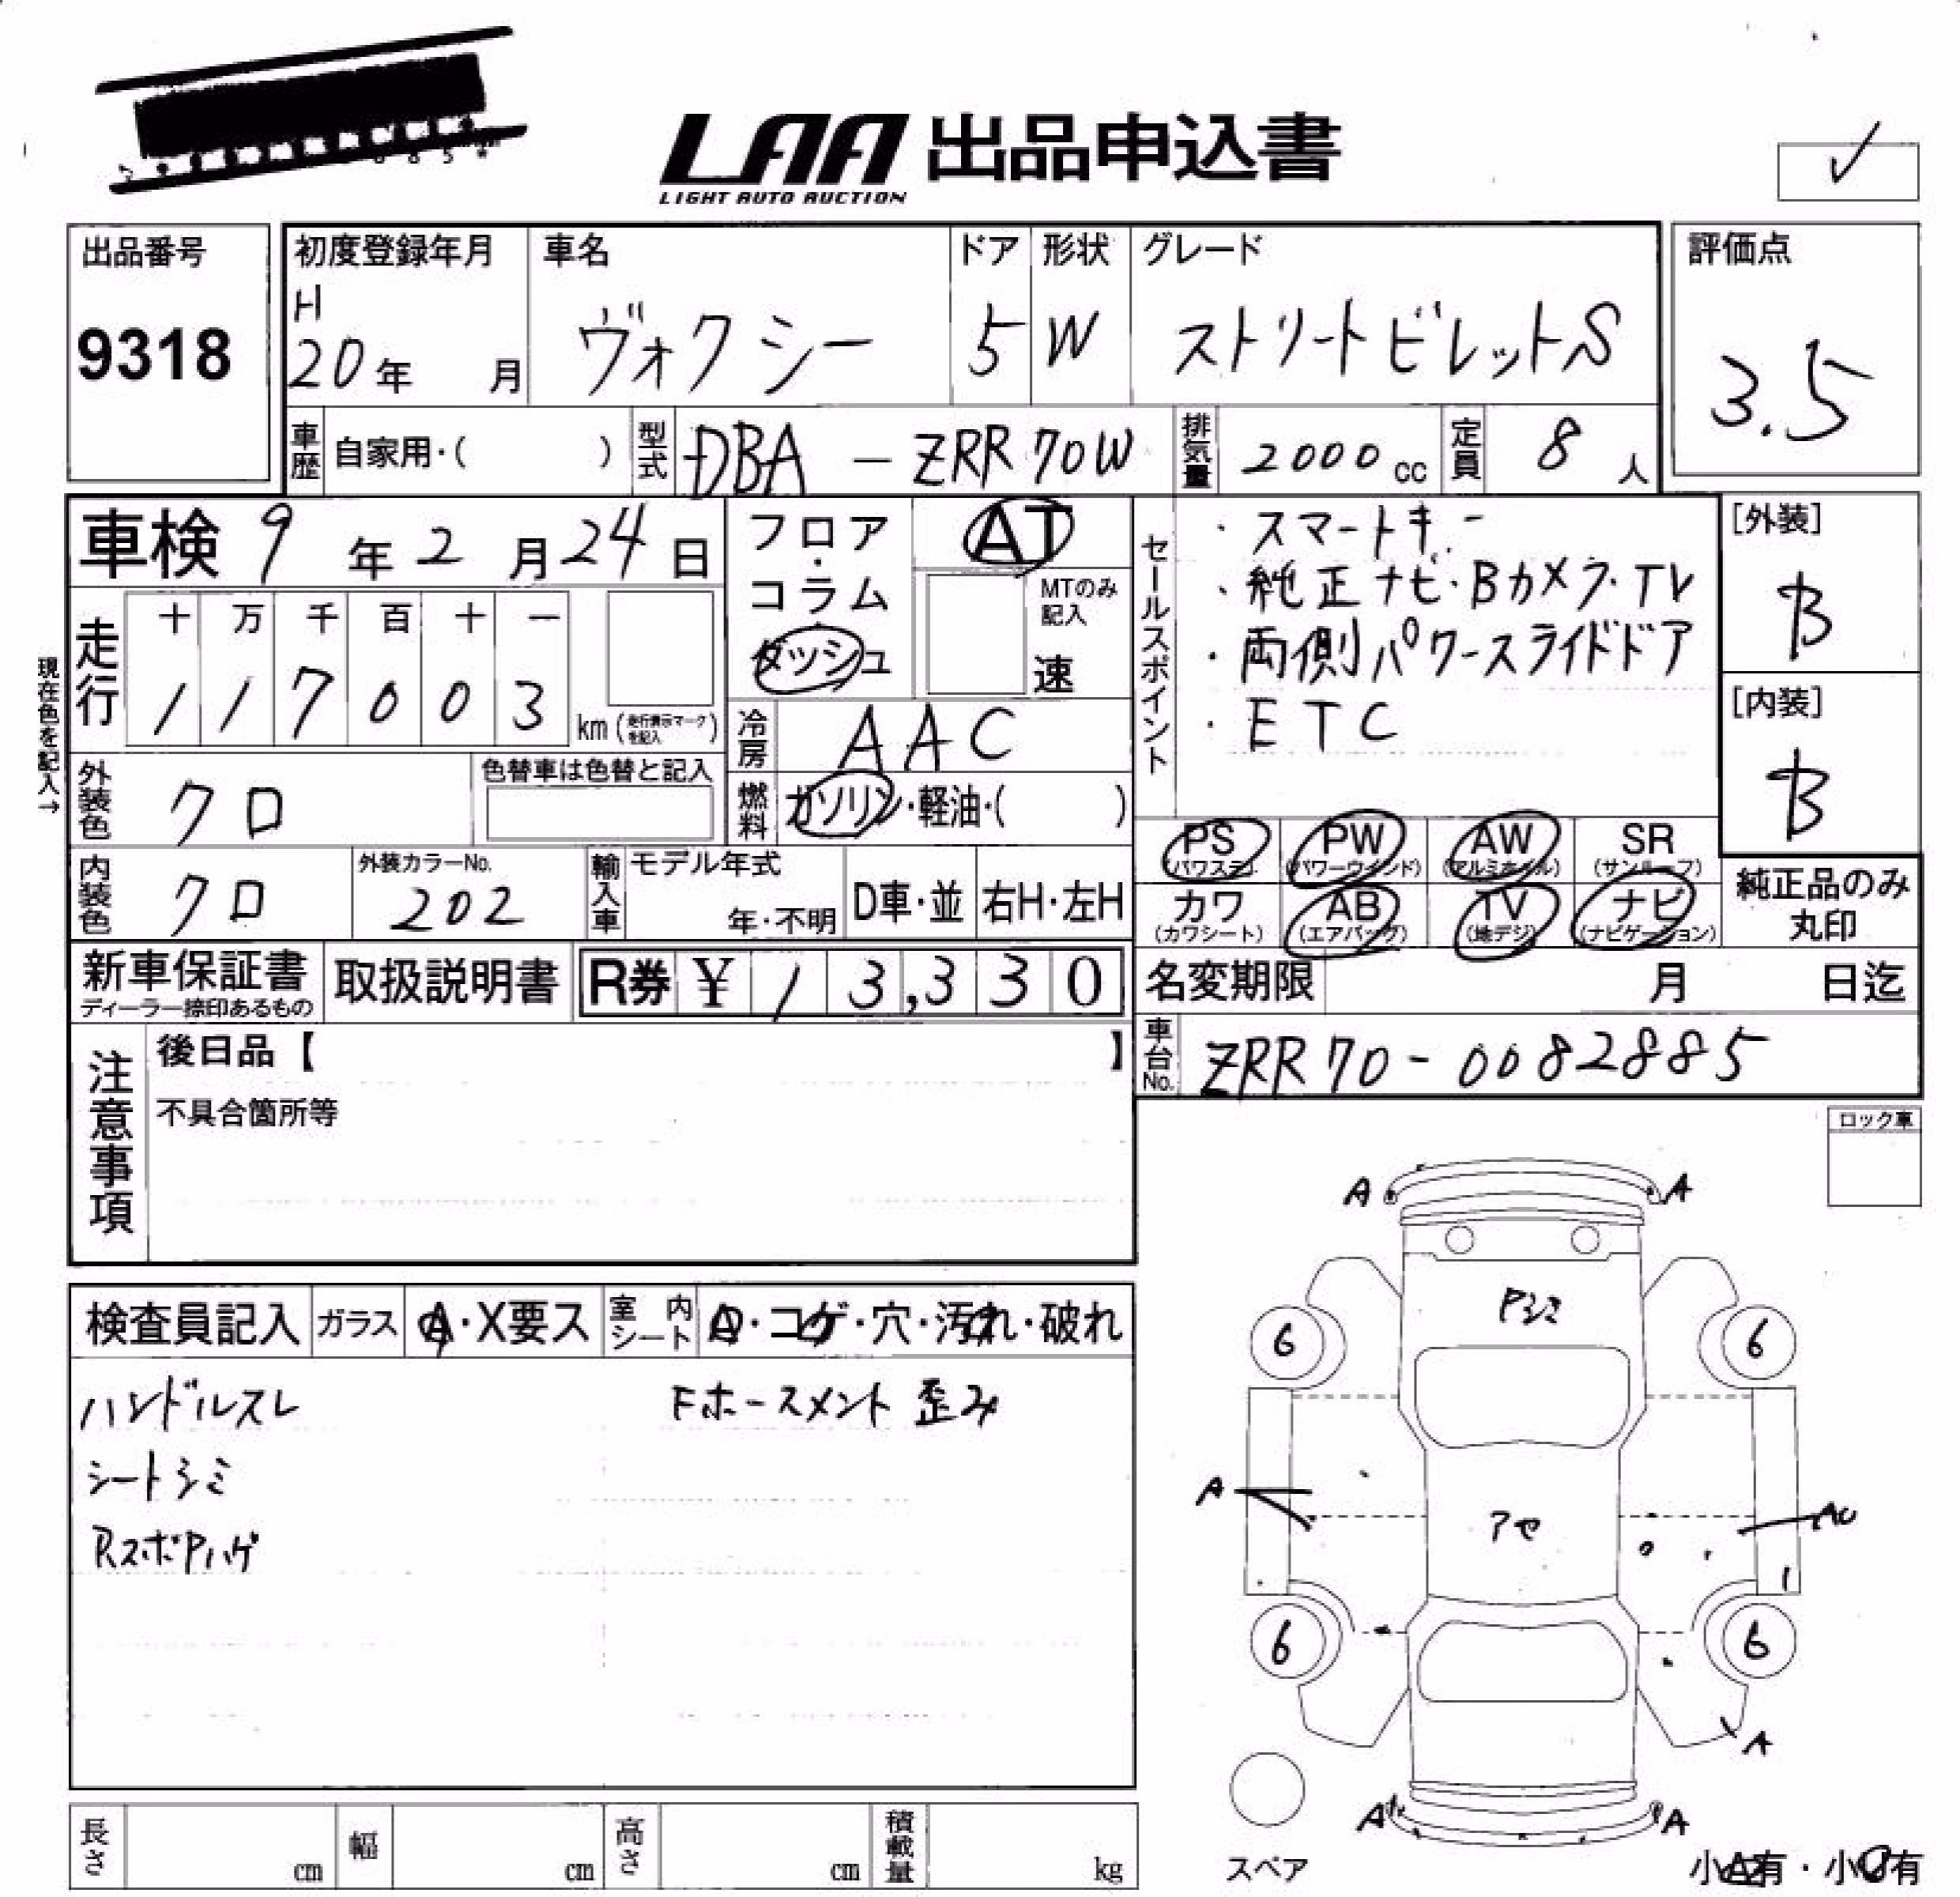 LAA 出品申込書
LIGHT AUTO AUCTION
出品番号
9318
初度登録年月
H
20年 月
車名
ヴォクシー
ドア
5
形状
W
グレード
ストリートビレットS
評価点
3.5
車歴 自家用・( )
型式 DBA - ZRR70W
排気量 2000 cc
定員 8 人
車検 9年2月24日
フロア・コラム・ダッシュ
AT
MTのみ記入
速
セールスポイント
・スマートキー
・純正ナビ・Bカメラ・TV
・両側パワースライドドア
・ETC
[外装]
B
[内装]
B
現在色を記入→
走行
十 万 千 百 十 一
1 1 7 0 0 3
km (走行表示マークを記入)
冷房 AAC
外装色 クロ
色替車は色替と記入
燃料 ガソリン・軽油・( )
PS (パワステ)
PW (パワーウインド)
AW (アルミホイル)
SR (サンルーフ)
内装色 クロ
外装カラーNo.
202
輸入車 モデル年式
年・不明
D車・並
右H・左H
カワ (カワシート)
AB (エアバッグ)
TV (地デジ)
ナビ (ナビゲーション)
純正品のみ
丸印
新車保証書
ディーラー捺印あるもの
取扱説明書
R券 ¥ 13,330
名変期限 月 日迄
注意事項
後日品【 】
不具合箇所等
車台No. ZRR70-0082885
ロック車
検査員記入
ガラス A・X要ス
室内シート
・コゲ・穴・汚れ・破れ
ハンドルスレ
Fホースメント歪み
シートシミ
RスポPハゲ
A A
Pシミ
6 6
A
アセ
6 6
A
A A
スペア
小 有・小 有
長さ cm
幅 cm
高さ cm
積載量 kg